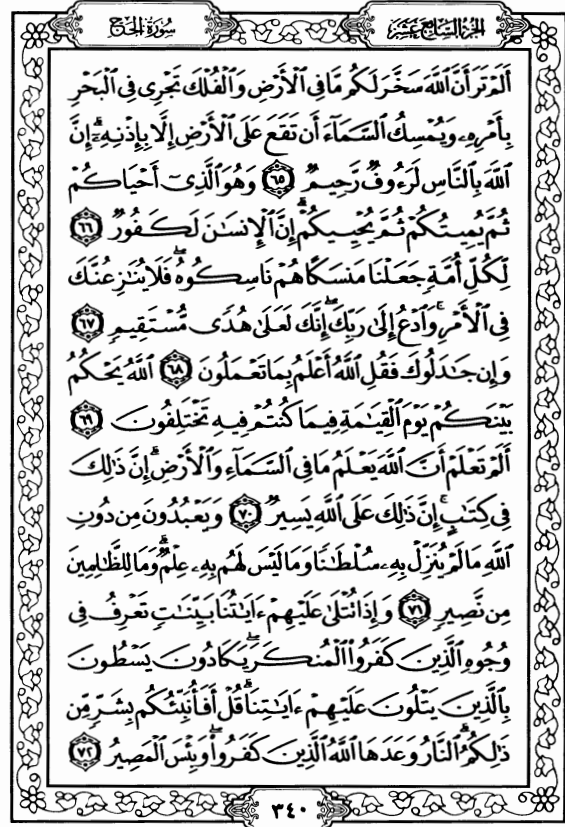 سُورَةُ الحَجّ
الجزء السابع عشر
أَلَمْ تَرَ أَنَّ ٱللَّهَ سَخَّرَ لَكُم مَّا فِى ٱلْأَرْضِ وَٱلْفُلْكَ تَجْرِى فِى ٱلْبَحْرِ
بِأَمْرِهِۦ وَيُمْسِكُ ٱلسَّمَآءَ أَن تَقَعَ عَلَى ٱلْأَرْضِ إِلَّا بِإِذْنِهِۦٓ ۗ إِنَّ
ٱللَّهَ بِٱلنَّاسِ لَرَءُوفٌ رَّحِيمٌ ٦٥ وَهُوَ ٱلَّذِىٓ أَحْيَاكُمْ
ثُمَّ يُمِيتُكُمْ ثُمَّ يُحْيِيكُمْ ۗ إِنَّ ٱلْإِنسَٰنَ لَكَفُورٌ ٦٦
لِكُلِّ أُمَّةٍ جَعَلْنَا مَنسَكًا هُمْ نَاسِكُوهُ ۖ فَلَا يُنَٰزِعُنَّكَ
فِى ٱلْأَمْرِ ۚ وَٱدْعُ إِلَىٰ رَبِّكَ ۖ إِنَّكَ لَعَلَىٰ هُدًى مُّسْتَقِيمٍ ٦٧
وَإِن جَٰدَلُوكَ فَقُلِ ٱللَّهُ أَعْلَمُ بِمَا تَعْمَلُونَ ٦٨ ٱللَّهُ يَحْكُمُ
بَيْنَكُمْ يَوْمَ ٱلْقِيَٰمَةِ فِيمَا كُنتُمْ فِيهِ تَخْتَلِفُونَ ٦٩
أَلَمْ تَعْلَمْ أَنَّ ٱللَّهَ يَعْلَمُ مَا فِى ٱلسَّمَآءِ وَٱلْأَرْضِ ۗ إِنَّ ذَٰلِكَ
فِى كِتَٰبٍ ۚ إِنَّ ذَٰلِكَ عَلَى ٱللَّهِ يَسِيرٌ ٧٠ وَيَعْبُدُونَ مِن دُونِ
ٱللَّهِ مَا لَمْ يُنَزِّلْ بِهِۦ سُلْطَٰنًا وَمَا لَيْسَ لَهُم بِهِۦ عِلْمٌ ۗ وَمَا لِلظَّٰلِمِينَ
مِن نَّصِيرٍ ٧١ وَإِذَا تُتْلَىٰ عَلَيْهِمْ ءَايَٰتُنَا بَيِّنَٰتٍ تَعْرِفُ فِى
وُجُوهِ ٱلَّذِينَ كَفَرُوا۟ ٱلْمُنكَرَ ۖ يَكَادُونَ يَسْطُونَ
بِٱلَّذِينَ يَتْلُونَ عَلَيْهِمْ ءَايَٰتِنَا ۗ قُلْ أَفَأُنَبِّئُكُم بِشَرٍّ مِّن
ذَٰلِكُمُ ۗ ٱلنَّارُ وَعَدَهَا ٱللَّهُ ٱلَّذِينَ كَفَرُوا۟ ۖ وَبِئْسَ ٱلْمَصِيرُ ٧٢
٣٤٠